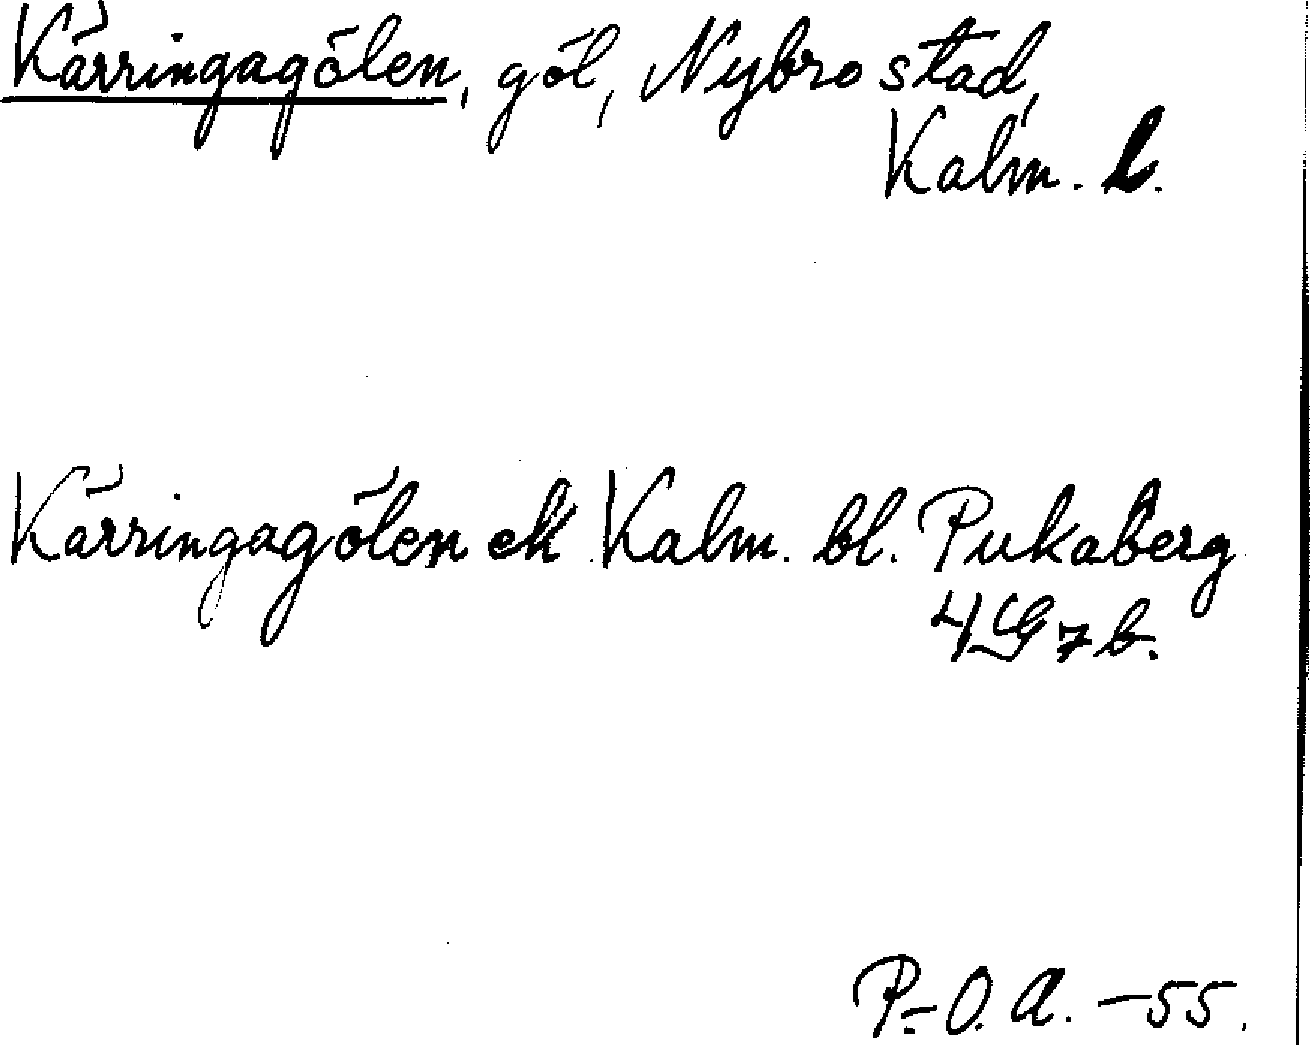 Kärringagölen, göl, Nybro stad,
Kalm. l.
Kärringagölen ek Kalm. bl. Pukaberg
4G7b.
P.-O.A. -55.